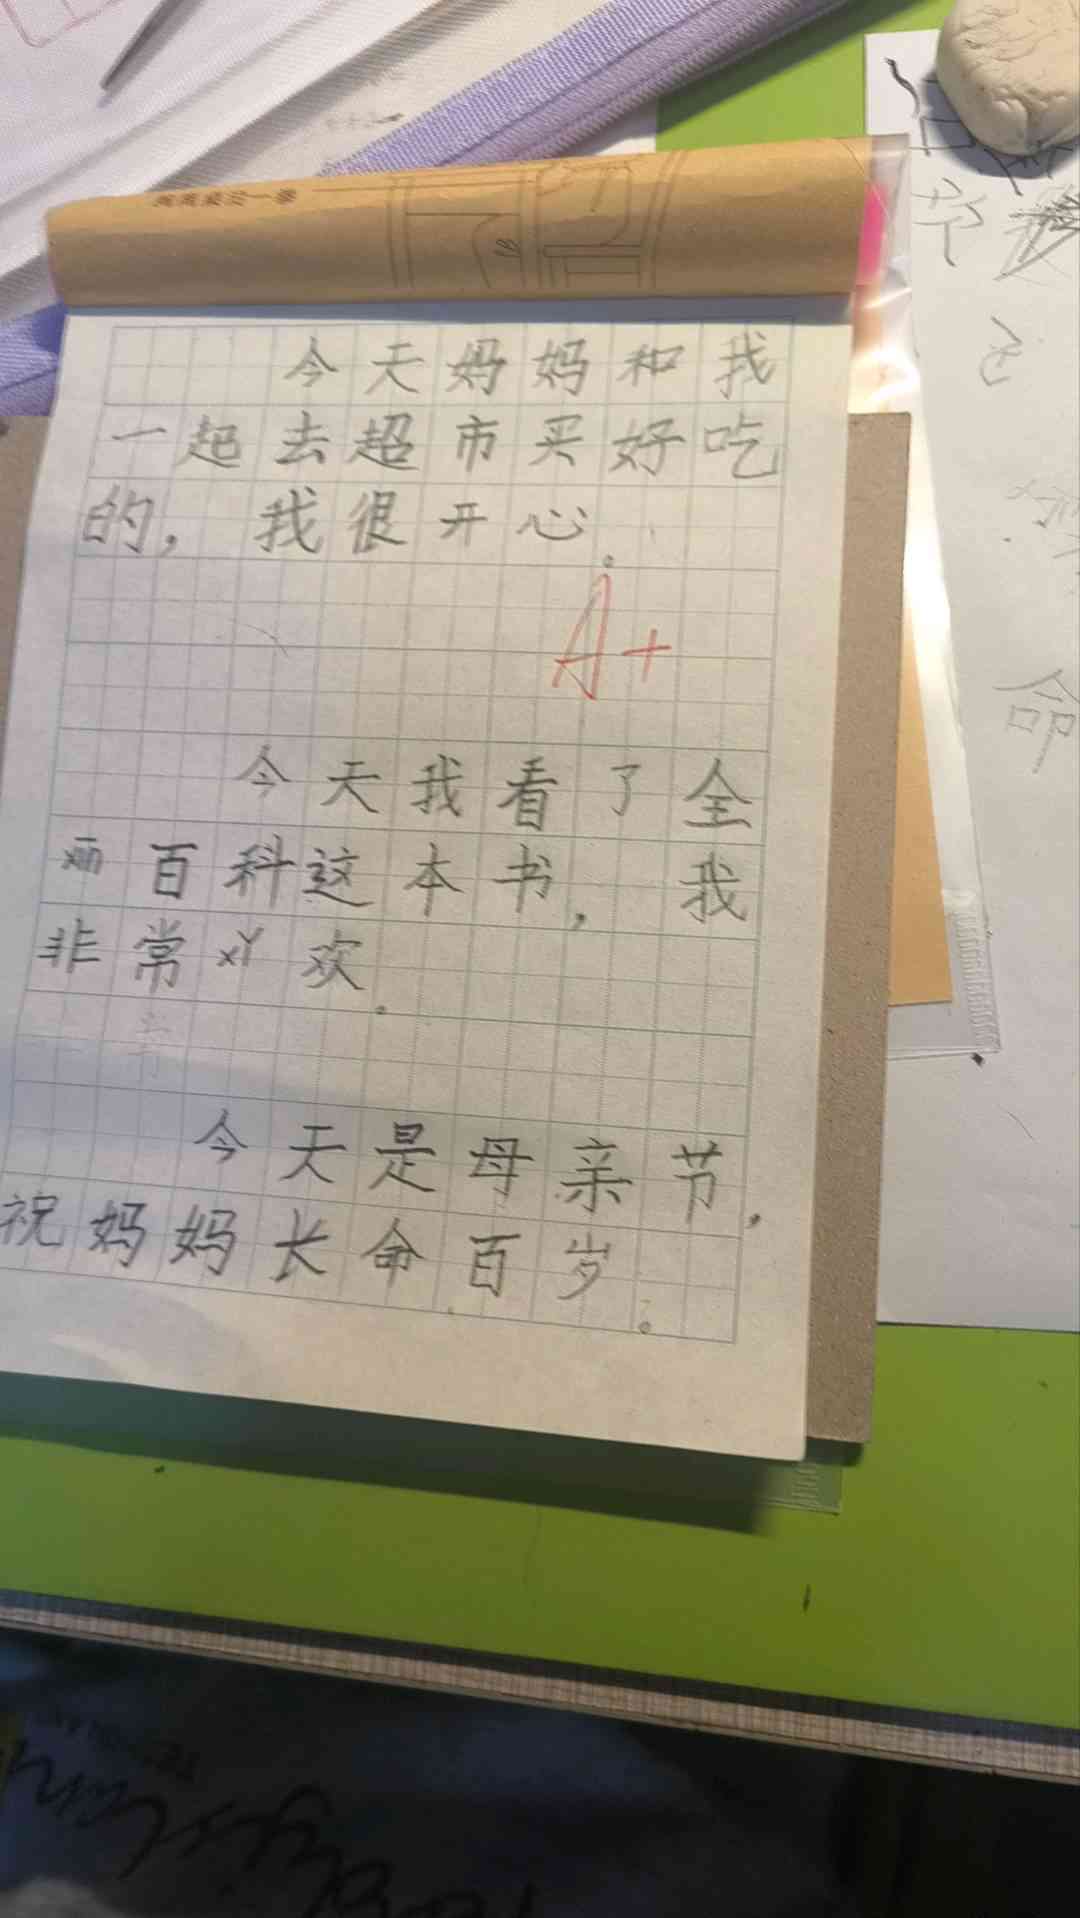 今天妈妈和我
一起去超市买好吃
的，我很开心。
A+
今天我看了全
百科这本书，我
非常 欢.
今天是母亲节，
祝妈妈长命百岁。
命